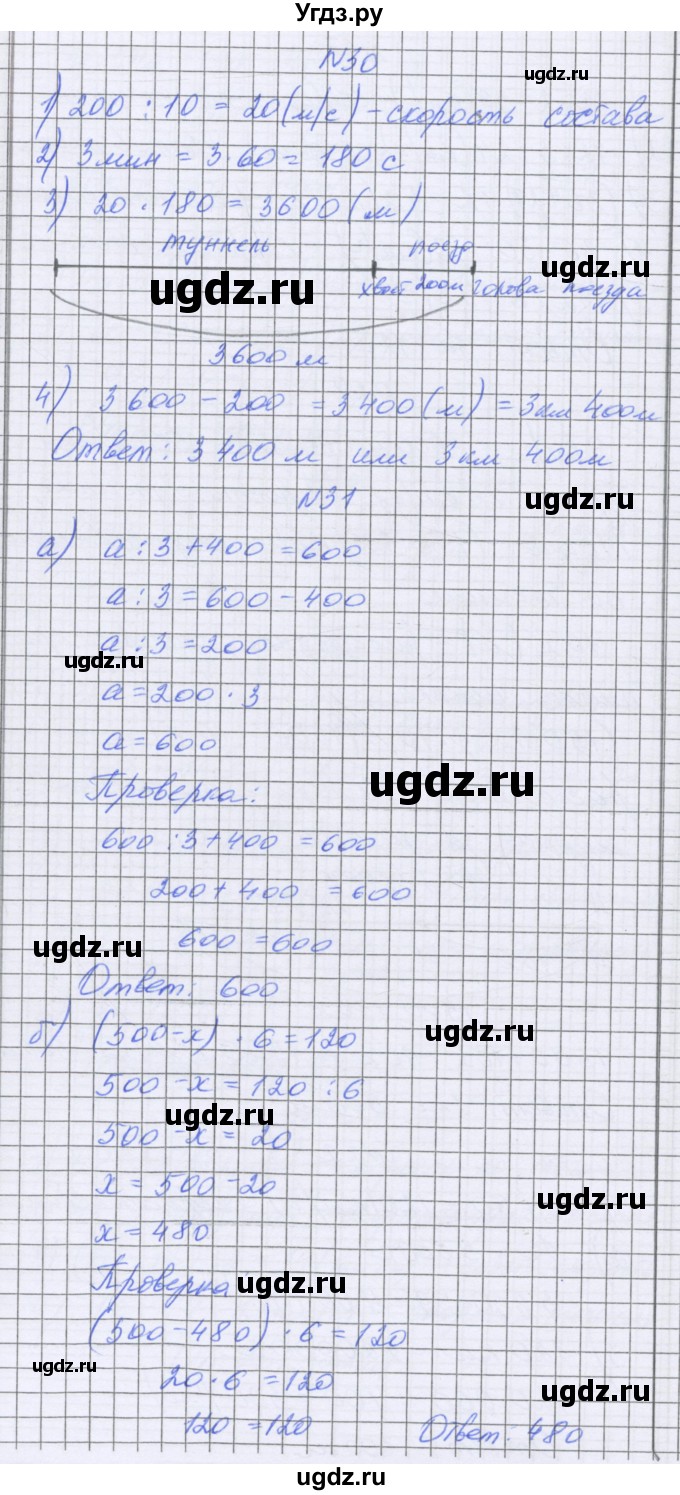 Угдз.ру
N30
ugdz.ru
1) 200 : 10 = 20 (м/с) - скорость состава
2) 3 мин = 3 · 60 = 180 с
3) 20 · 180 = 3600 (м)
туннель поезд
ugdz.ru ugdz.ru
хвост 200м голова поезда
3600 м
4) 3 600 - 200 = 3 400 (м) = 3км 400м
Ответ: 3 400 м или 3 км 400м
N31 ugdz.ru
а) a : 3 + 400 = 600
a : 3 = 600 - 400
a : 3 = 200
ugdz.ru
a = 200 · 3
a = 600
Проверка: ugdz.ru
600 : 3 + 400 = 600
200 + 400 = 600
600 = 600
ugdz.ru
Ответ: 600
б) (500 - x) · 6 = 120 ugdz.ru
500 - x = 120 : 6
ugdz.ru
500 - x = 20
x = 500 - 20
ugdz.ru
x = 480
Проверка ugdz.ru
(500 - 480) · 6 = 120
ugdz.ru
20 · 6 = 120 ugdz.ru
120 = 120 Ответ: 480
ugdz.ru